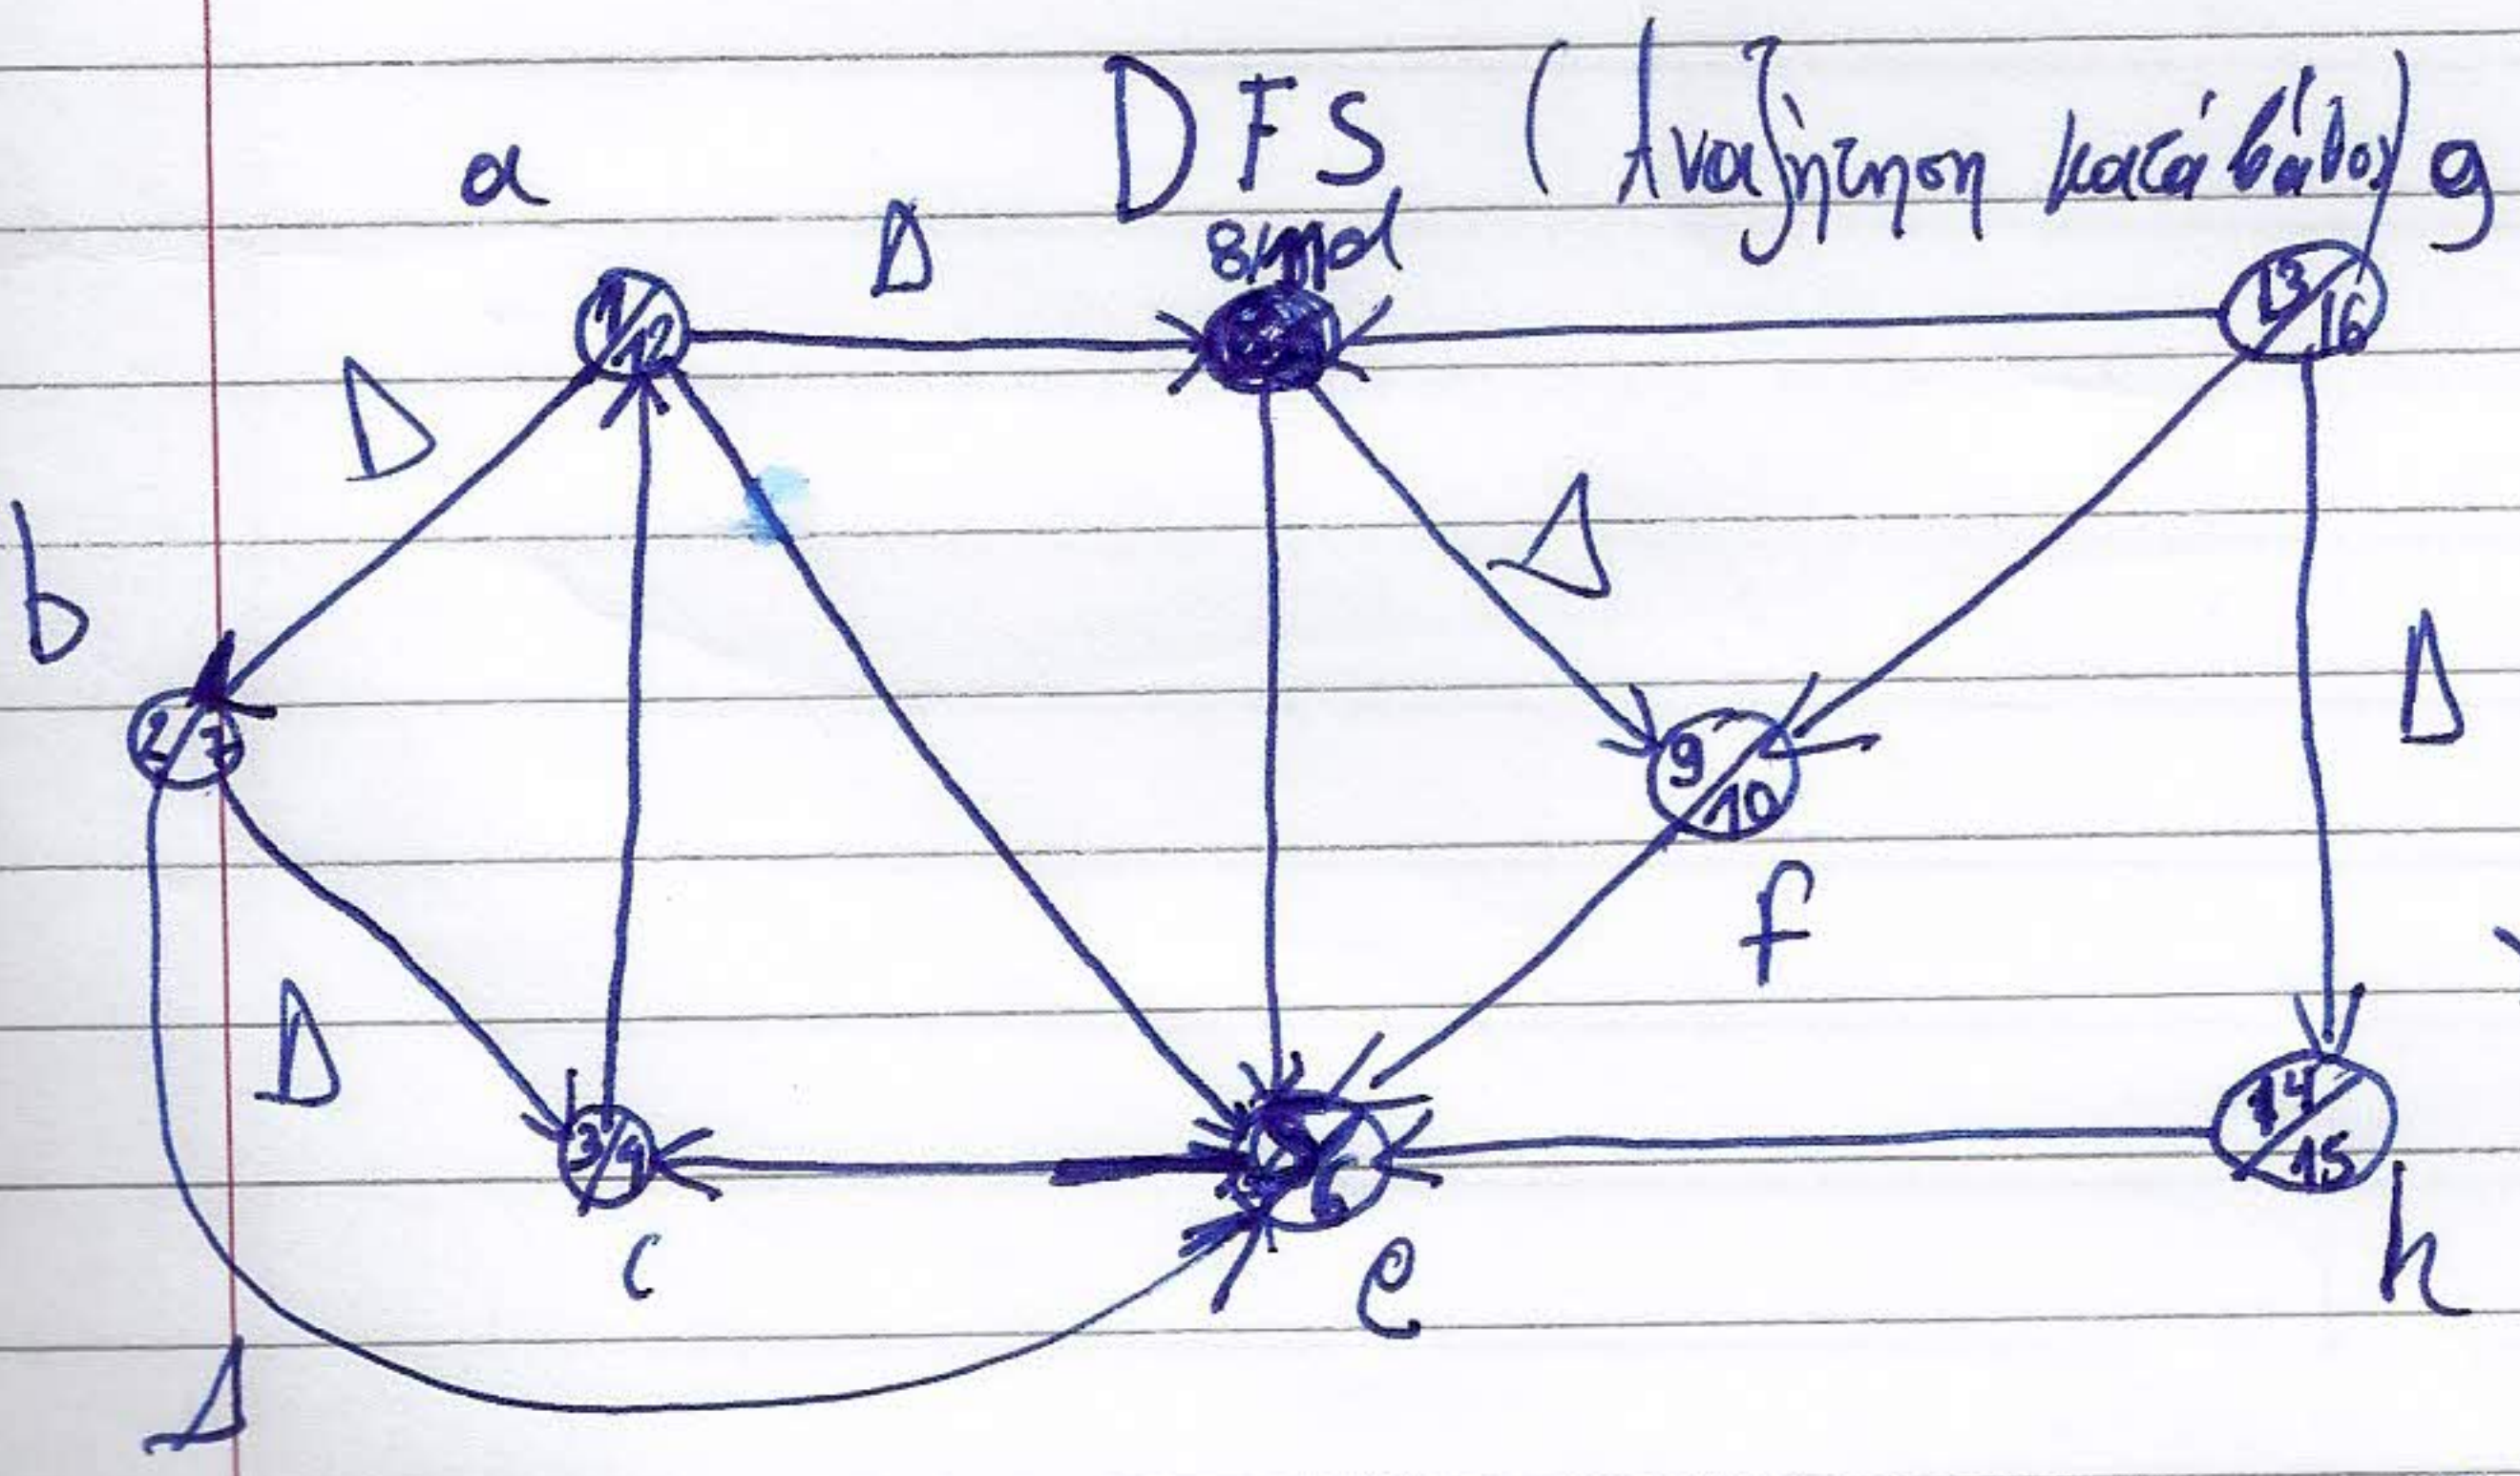 DFS (Αναζήτηση κατά βάθος) g
a Δ
1/12 13/16
Δ
b Δ
Δ
2/7 9/10
f
Δ
3/4 6 14/15
c e h
Δ